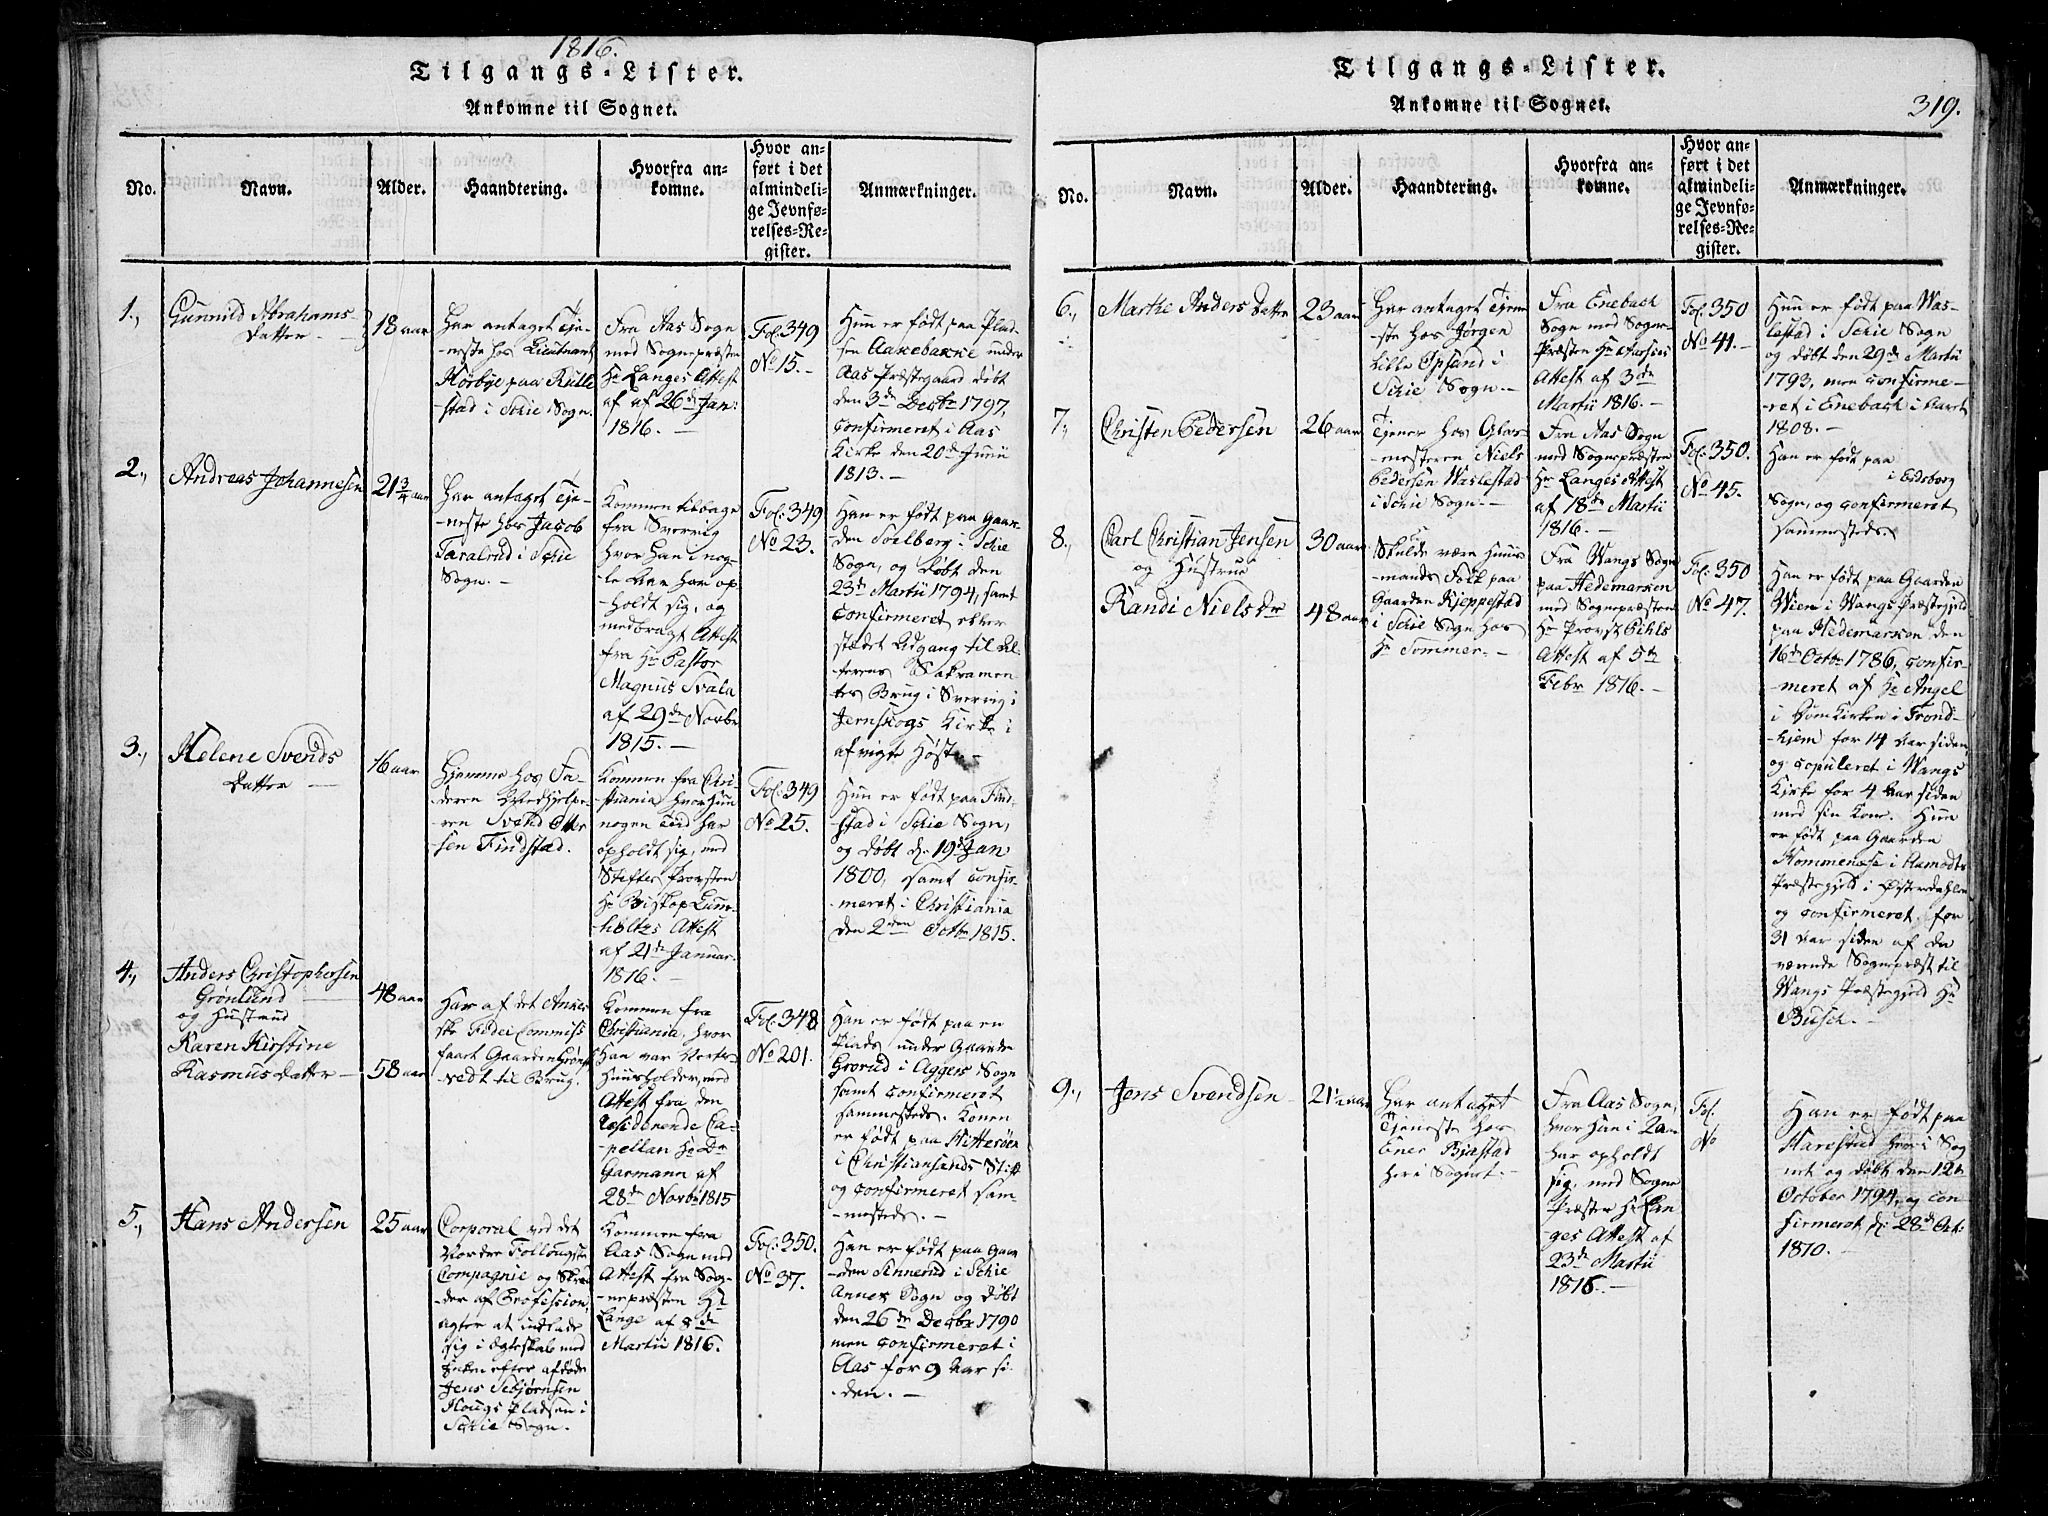 1816.
Tilgangs-Lister.
Ankomne til Sognet.
No.
Navn.
Alder.
Haandtering.
Hvorfra an-
komne.
Hvor an-
ført i det
almindeli-
ge Jevnfø-
relses-Re-
gister.
Anmærkninger.
1.,
Gunnild Abrahams
Datter
18 aar
Har antaget Tje-
neste hos Lieutnant
Hørbye paa Kulle
stad i Schie Sogn.
Fra Aas Sogn
med Sognepræsten
Hr Langes Attest
af 26de Jan:
1816. –
Fol: 349
No 15. –
Hun er født paa Plad-
sen Aakebakke under
Aas Præstegaard døbt
den 3de Decbr 1797,
confirmeret i Aas
Kirke den 20de Junii
1813. –
2.,
Andreas Johannesen
21 3/4 aar
Har antaget Tje-
neste hos Jacob
Taralrud i Schie
Sogn. –
Kommen tilbage
fra Sverrig
hvor han i nog-
le Aar har op-
holdt sig, og
medbragt Attest
fra Hr Pastor
Magnus Svala
af 29de Novbr
1815. –
Fol: 349
No 23.
Han er født paa Gaar-
den Soelberg i Schie
Sogn, og døbt den
23de Martii 1794, samt
confirmeret eller
stædet Adgang til Al-
terens Sakramen-
tes Brug i Sverrig i
Jernskogs Kirke i
afvigte Høst. –
3.,
Helene Svends
Datter –
16 aar
Hjemme hos Fa-
deren Medhjelpe-
ren Svend Otter
sen Findstad.
Kommen fra Chri-
stiania hvor hun
nogen Tid har
opholdt sig, med
Stifts Provsten
Hr Biskop Lum-
holtzs Attest
af 21de Januar
1816. –
Fol: 349
No 25.
Hun er født paa Find-
stad i Schie Sogn,
og døbt d: 19de Jan
1800, samt confir-
meret i Christiania
den 2den Octbr 1815.
4.,
Anders Christophersen
Grønlund
og Hustrue
Karen Kirstine
Rasmus Datter –
48 aar
58 aar
Har af det Anker
ske Fidei Commiss
faaet Gaarden Grøns
vedt til Brug.
Kommen fra
Christiania, hvor
han var Verts-
huusholder, med
Attest fra den
residerende Ca-
pellan Hr Dr
Garmann af
28de Novbr 1815
Fol: 348
No 201.
Han er født paa en
Plads under Gaarden
Grorud i Aggers Sogn
samt confirmeret
sammesteds. Konen
er født paa Hitterøen
i Christiansands Stift
og confirmeret sam-
mesteds. –
5.,
Hans Andersen
25 aar
Corporal ved det
Nordre Follougske
Compagnie og Skræd
der af Profession,
agter at indlade
sig i Ægteskab med
Enken efter afdøde
Jens Asbjørnsen
Hougs Pladsen i
Schie Sogn.
Kommen fra
Aas Sogn med
Attest fra Sog-
nepræsten Hr
Lange af 8de
Martii 1816.
Fol: 350.
No 37.
Han er født paa Gaar
den Sinnerud i Schie
Annex Sogn og døbt
den 26de Decbr 1790
men confirmeret i
Aas for 9 Aar si-
den. –
Tilgangs-Lister.
Ankomne til Sognet.
319.
No.
Navn.
Alder.
Haandtering.
Hvorfra an-
komne.
Hvor an-
ført i det
almindeli-
ge Jevnfø-
relses-Re-
gister.
Anmærkninger.
6.,
Marthe Anders Datter
23 aar
Har antaget Tjene
ste hos Jørgen
Lille Opsand i
Schie Sogn. –
Fra Enebach
Sogn med Sogne-
Præsten Hr
Attest af 3de
Martii 1816. –
Fol: 350
No 41. –
Hun er født paa Was-
lestad i Schie Sogn
og døbt den 29de Martii
1793, men confirme-
ret i Enebach i Aaret
1808. –
7.,
Christen Pedersen
26 aar
Tjener hos Glar-
mesteren Niels
Pedersen Waslestad
i Schie Sogn. –
Fra Aas Sogn
med Sognepræsten
Hr Langes Attest
af 18de Martii
1816. –
Fol: 350.
No 45.
Han er født paa
i Eidsberg
Sogn, og confirmeret
sammesteds.
8.,
Carl Christian Jensen
og Hustrue
Randi Niels Dr
30 aar
48 aar
Skulde være Huus-
mands Folk paa
Gaarden Kjeppestad
i Schie Sogn hos
Hr Sommer. –
Fra Wangs Sogn
paa Hedemarken
med Sognepræsten
Hr Provst Pihls
Attest af 5te
Febr 1816. –
Fol: 350
No 47.
Han er født paa Gaarden
Wien i Wangs Præstegjeld
paa Hedemarken den
16de Octbr 1786, confir-
meret af Hr Angel
i Domkirken i Trond-
hjem for 14 Aar siden,
og copuleret i Wangs
Kirke for 4 Aar siden
med sin Kone. Hun
er født paa Gaarden
i Aamodts
Præstegjeld i Østerdahlen
og confirmeret for
31 Aar siden af da
værende Sognepræst til
Wangs Præstegjeld Hr
Busch. –
9.,
Jens Svendsen –
21 1/2 aar
Har antaget
Tjeneste hos
Ener Bjastad
her i Sognet. –
Fra Aas Sogn,
hvor han i 2 aar
har opholdt
sig, med Sogne
Præsten Hr Lan-
ges Attest af
23de Martii
1816. –
Fol.
No
Han er født paa
Harestad her i Sog
net og døbt den 12te
October 1794, og con
firmeret d: 28de Oct:
1810. –